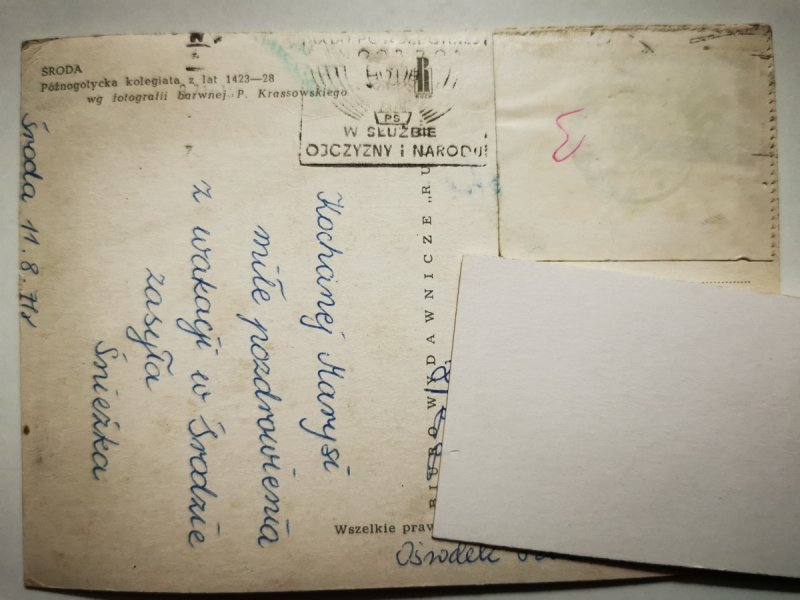 ŚRODA
Późnogotycka kolegiata z lat 1423—28
wg fotografii barwnej P. Krassowskiego
PS
W SŁUŻBIE
OJCZYZNY I NARODU
RUCH
Środa 11.8.71r
Kochanej Marysi
miłe pozdrowienia
z wakacji w Środzie
zasyła
Śnieżka
BIURO WYDAWNICZE „RU
Wszelkie praw
Ośrodek